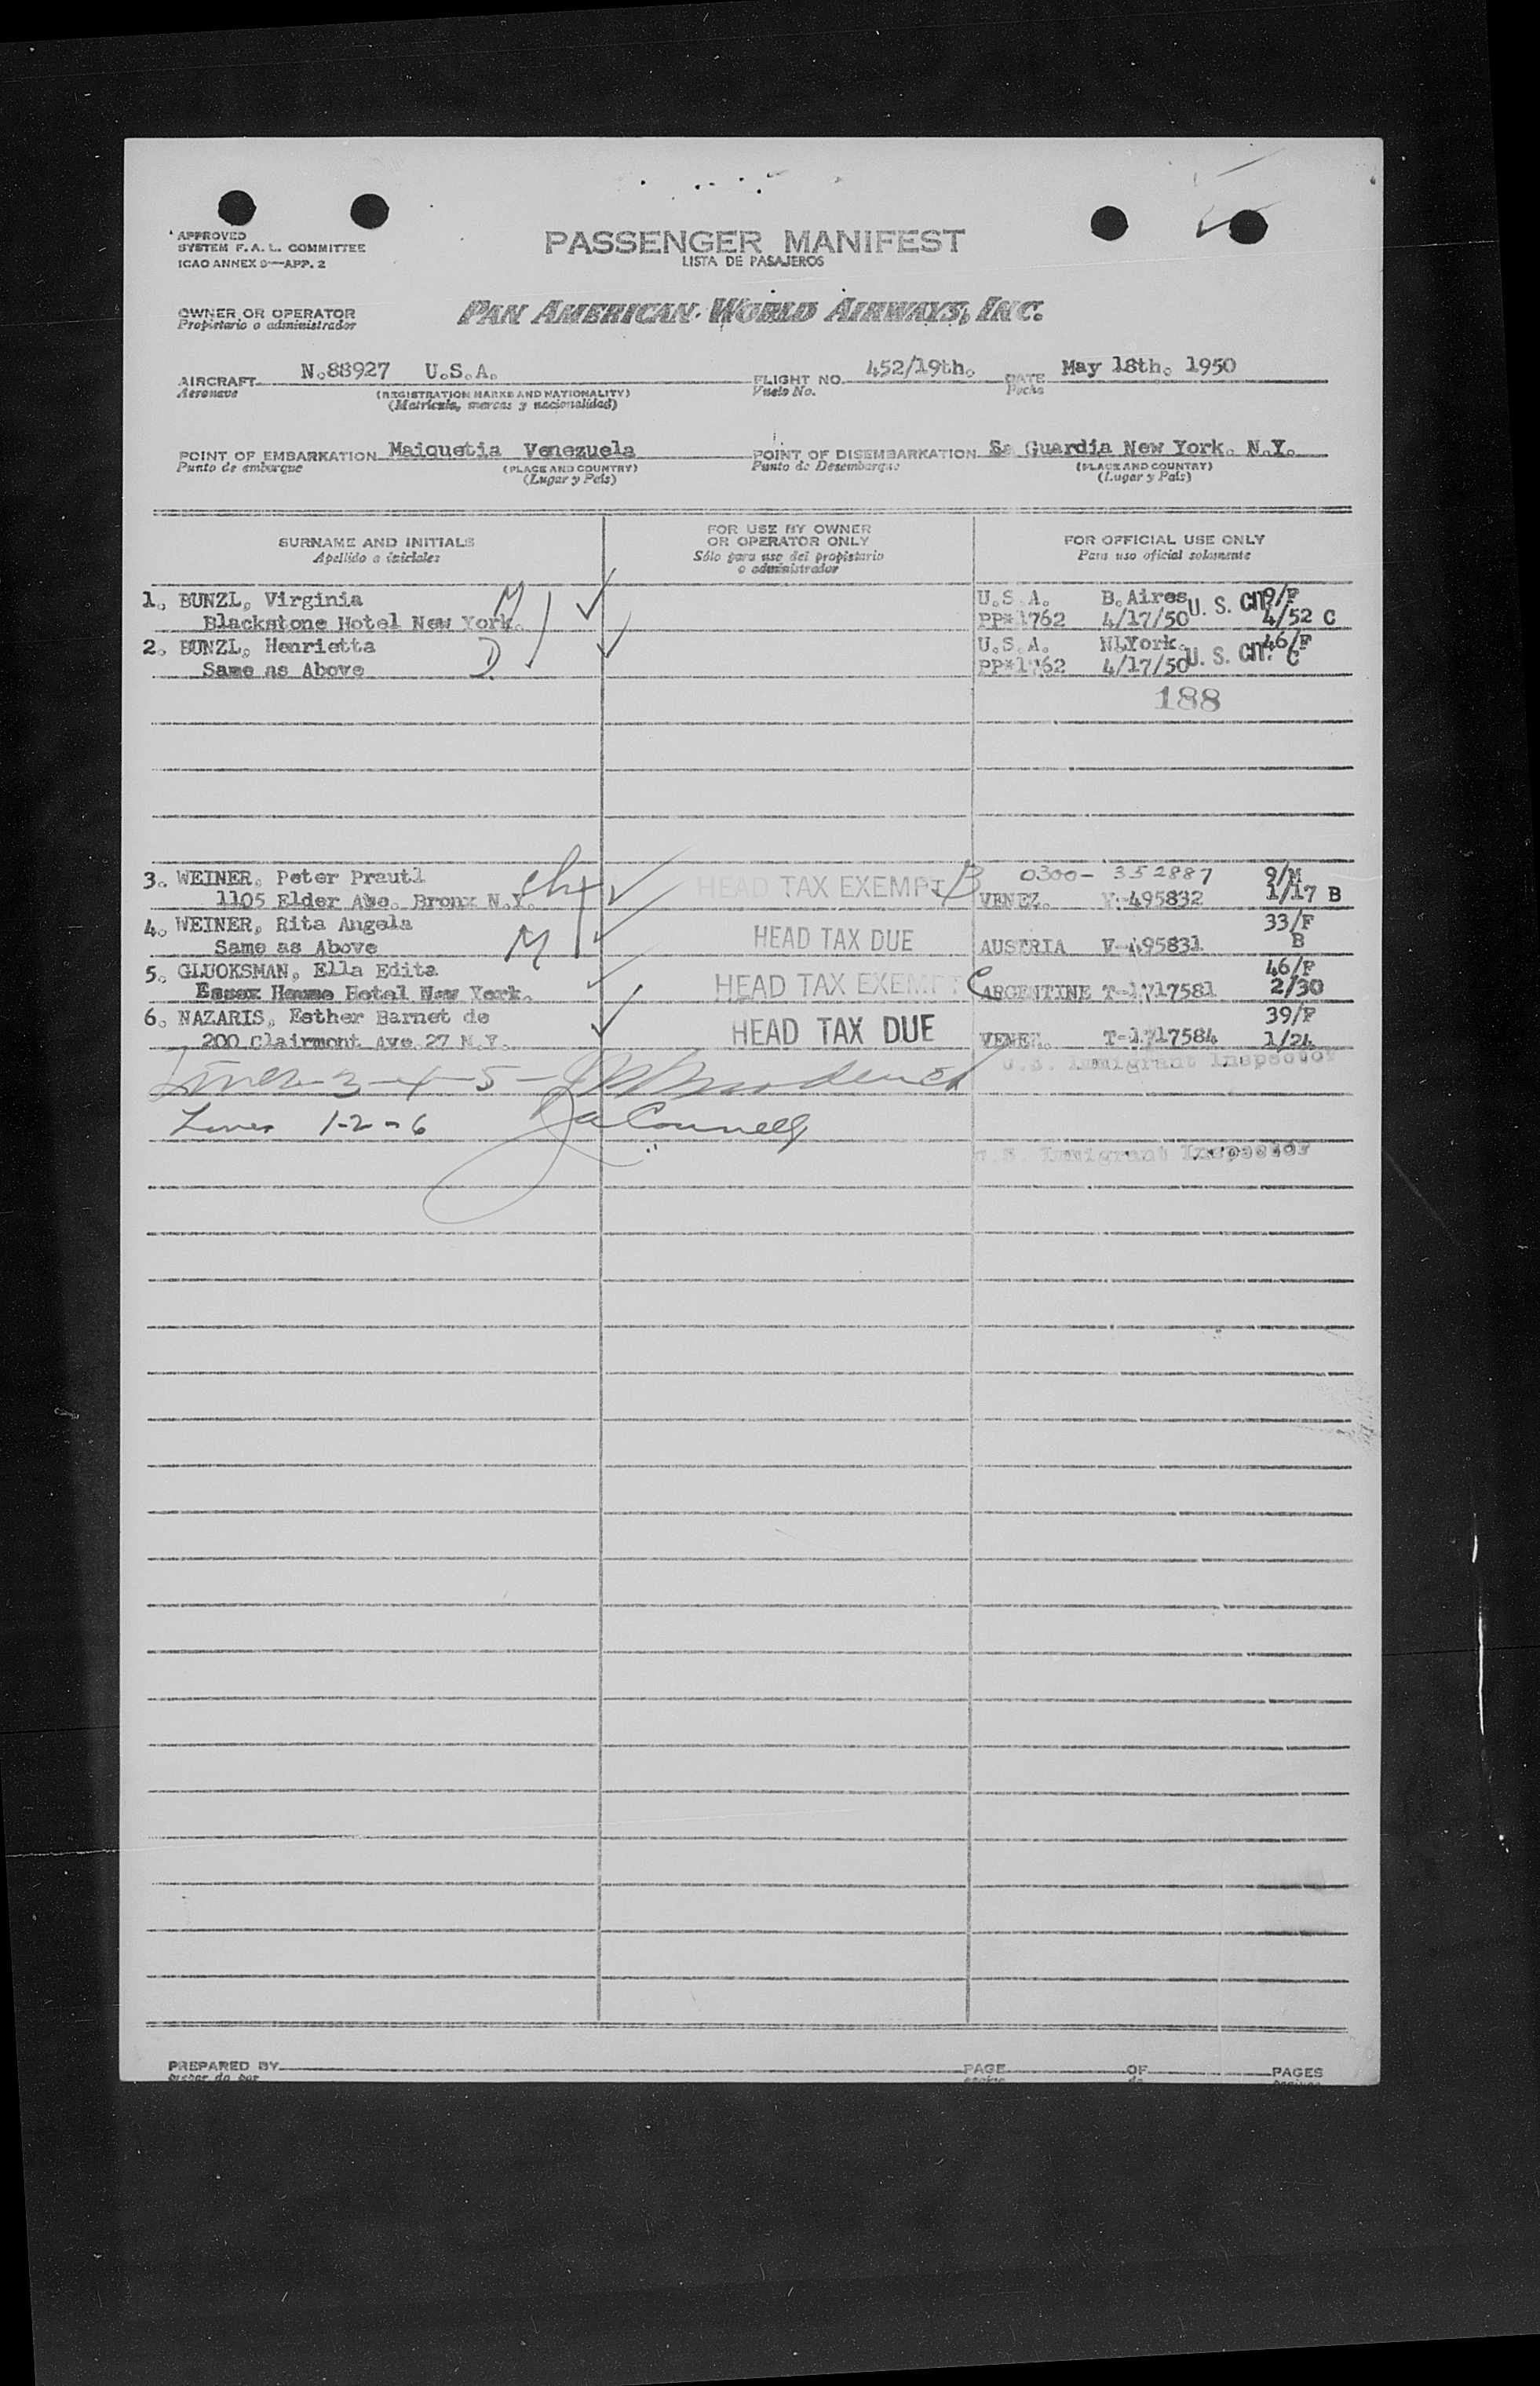 APPROVED
SYSTEM F. A. L. COMMITTEE
ICAO ANNEX 9—APP. 2
PASSENGER MANIFEST
LISTA DE PASAJEROS
OWNER OR OPERATOR
Propietario o administrador
PAN AMERICAN WORLD AIRWAYS, INC.
AIRCRAFT N.88927 U.S.A. FLIGHT NO. 452/19th. DATE May 18th. 1950
Aeronave (REGISTRATION MARKS AND NATIONALITY) Vuelo No. Fecha
(Matrícula, marcas y nacionalidad)
POINT OF EMBARKATION Maiquetia Venezuela POINT OF DISEMBARKATION Sa Guardia New York. N.Y.
Punto de embarque (PLACE AND COUNTRY) Punto de Desembarque (PLACE AND COUNTRY)
(Lugar y País) (Lugar y País)
SURNAME AND INITIALS FOR USE BY OWNER OR OPERATOR ONLY FOR OFFICIAL USE ONLY
Apellido a iniciales Sólo para uso del propietario o administrador Para uso oficial solamente
1. BUNZL, Virginia M U.S.A. B.Aires 9/F
Blackstone Hotel New York. PP*1762 4/17/50 U. S. CIT. 4/52 C
2. BUNZL, Henrietta U.S.A. N.York. 46/F
Same as Above D PP*1762 4/17/50 U. S. CIT. C
188
3. WEINER, Peter Prautl ch HEAD TAX EXEMPT B 0300-352887 9/M
1105 Elder Ave. Bronx N.Y. VENEZ. V-495832 1/17 B
4. WEINER, Rita Angela HEAD TAX DUE 33/F
Same as Above M AUSTRIA V-495831 B
5. GLUOKSMAN, Ella Edita HEAD TAX EXEMPT C 46/F
Essex House Hotel New York. ARGENTINE T-1717581 2/30
6. NAZARIS, Esther Barnet de HEAD TAX DUE 39/F
200 Clairmont Ave 27 N.Y. VENEZ. T-1717584 1/24
U.S. Immigrant Inspector
Lines 3-4-5-
Lines 1-2-6
U.S. Immigrant Inspector
PREPARED BY PAGE OF PAGES